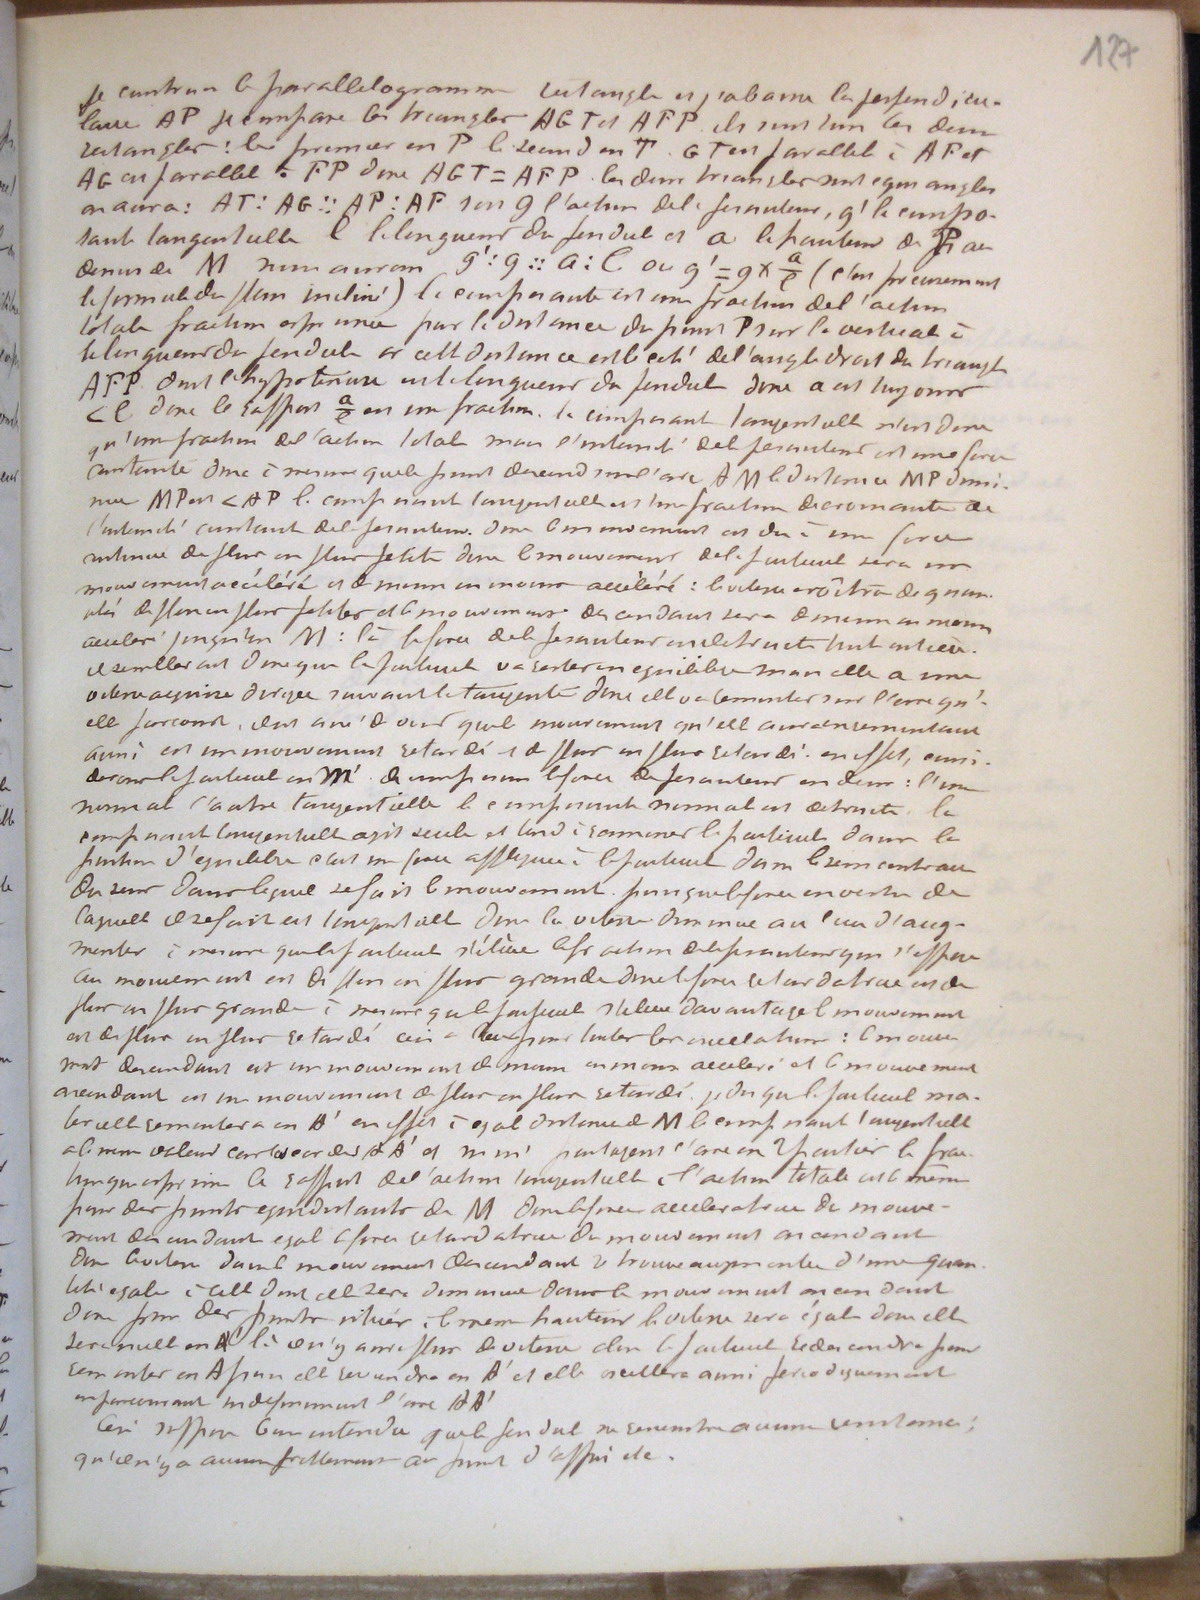 127
je construis le parallélogramme rectangle et j'abaisse la perpendicu-
laire AP je compare les triangles AGT et AFP ils sont tous les deux
rectangles : le premier en P le second en T. GT est parallèle à AF et
AG est parallèle à FP donc AGT = AFP les deux triangles sont équiangles
on aura : AT : AG :: AP : AF soit g l'action de la pesanteur, g' la compo-
sante tangentielle l la longueur du pendule et a la hauteur de P au
dessus de M nous aurons g' : g :: a : l ou g' = g × a/l (c'est précisément
la formule du plan incliné) la composante est une fraction de l'action
totale fraction exprimée par la distance du point P sur la verticale à
la longueur du pendule or cette distance est le côté de l'angle droit du triangle
AFP dont l'hypoténuse est la longueur du pendule donc a est toujours
< l donc le rapport a/l est une fraction. la composante tangentielle n'est donc
qu'une fraction de l'action totale mais l'intensité de la pesanteur est une force
constante donc à mesure que le point descend sur l'arc AM la distance MP dimi-
nue MP est < AP la composante tangentielle est une fraction décroissante de
l'intensité constante de la pesanteur. donc le mouvement est dû à une force
continue de plus en plus petite donc le mouvement de la particule sera un
mouvement accéléré et de moins en moins accéléré : la vitesse croîtra de quan-
tités de plus en plus petites et le mouvement descendant sera de moins en moins
accéléré jusqu'en M : là la force de la pesanteur est détruite tout entière.
il semblerait donc que la particule va rester en équilibre mais elle a une
vitesse acquise dirigée suivant la tangente donc elle va remonter sur l'arc qu'-
elle parcourt. il est aisé de voir que le mouvement qu'elle aura en remontant
ainsi est un mouvement retardé et de plus en plus retardé. en effet, consi-
dérons la particule en M' décomposons la force de pesanteur en deux : l'une
normale l'autre tangentielle la composante normale est détruite. la
composante tangentielle agit seule et tend à ramener la particule dans la
position d'équilibre c'est une force appliquée à la particule dans le sens contraire
du sens dans lequel se fait le mouvement. puisque la force en vertu de
laquelle il se fait est tangentielle donc la vitesse diminue au lieu d'aug-
menter à mesure que la particule s'élève la fraction de la pesanteur qui s'oppose
au mouvement est de plus en plus grande donc la force retardatrice est de
plus en plus grande à mesure que la particule s'élève davantage le mouvement
est de plus en plus retardé ceci a lieu pour toutes les oscillations : le mouve-
ment descendant est un mouvement de moins en moins accéléré et le mouvement
ascendant est un mouvement de plus en plus retardé. je dis que la particule ma-
térielle remontera en A' en effet à égale distance de M la composante tangentielle
a la même valeur car les cordes AA' et mm' partagent l'arc en 2 parties la frac-
tion qui exprime le rapport de l'action tangentielle à l'action totale est la même
pour des points équidistants de M donc la force accélératrice du mouve-
ment descendant égale la force retardatrice du mouvement ascendant
donc la vitesse dans le mouvement descendant se trouve augmentée d'une quan-
tité égale à celle dont elle sera diminuée dans le mouvement ascendant
donc pour des points situés à la même hauteur la vitesse sera égale donc elle
sera nulle en A' là il n'y aura plus de vitesse alors la particule redescendra pour
remonter en A puis elle reviendra en A' et elle oscillera ainsi périodiquement
en parcourant indéfiniment l'arc AA'
Ceci suppose bien entendu que le pendule ne rencontre aucune résistance ;
qu'il n'y a aucun frottement au point d'appui etc.